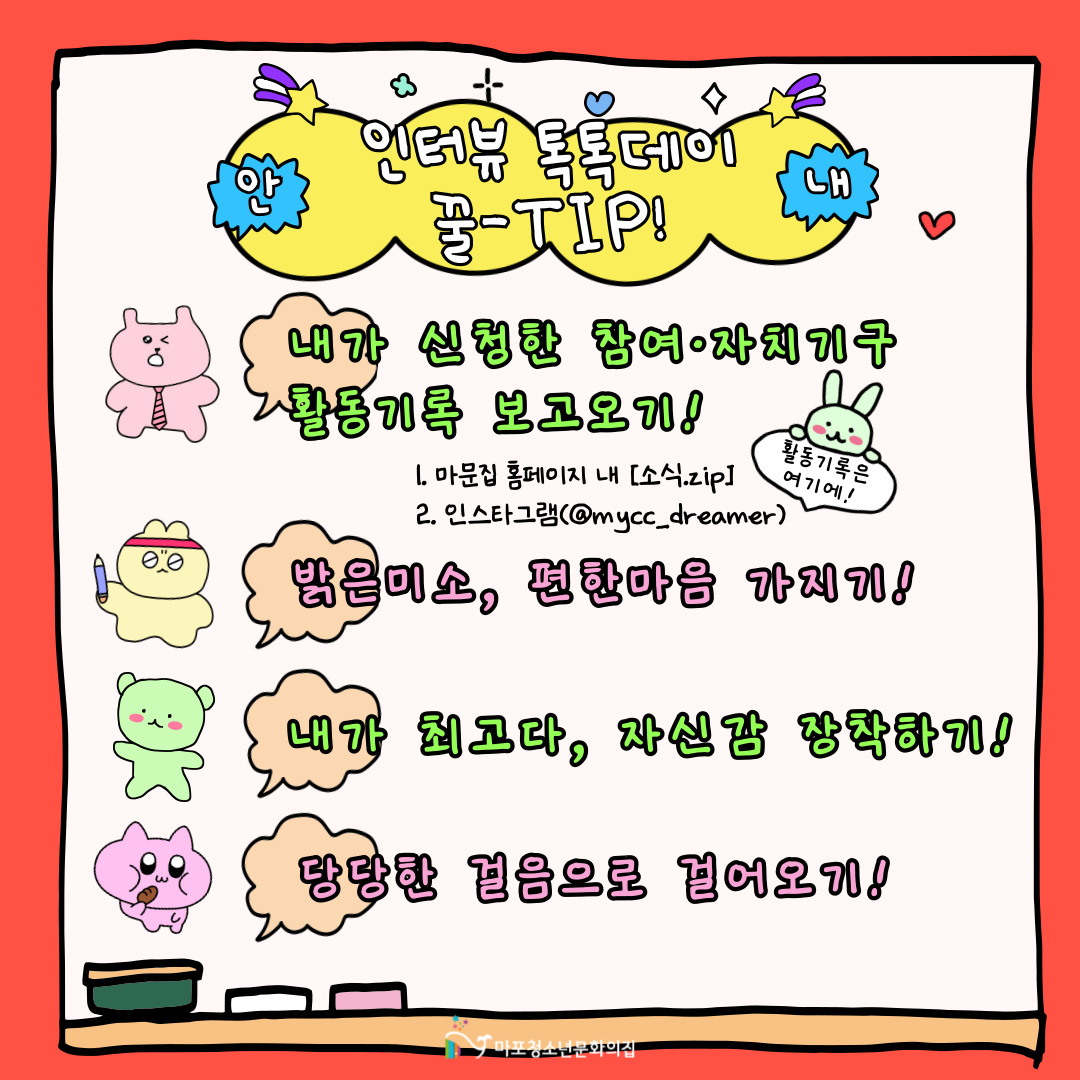 안
인터뷰 톡톡데이
꿀-TIP!
내
내가 신청한 참여·자치기구
활동기록 보고오기!
활동기록은
여기에!
1. 마문집 홈페이지 내 [소식.zip]
2. 인스타그램(@mycc_dreamer)
밝은미소, 편한마음 가지기!
내가 최고다, 자신감 장착하기!
당당한 걸음으로 걸어오기!
마포청소년문화의집